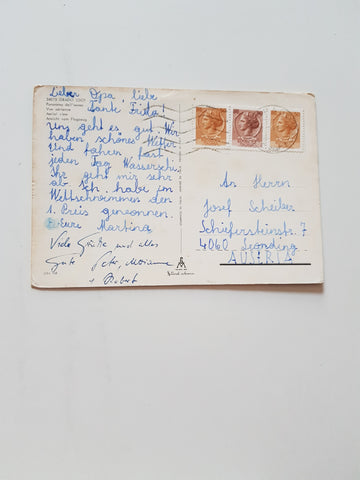 Lieber Opa liebe
Tante Frieda!
Uns geht es gut. Wir
haben schönes Wetter
und fahren fast
jeden Tag Wasserschi.
Ihr geht mir sehr
ab. Ich habe im
Wettschwimmen den
1. Preis gewonnen.
Eure Martina
Viele Grüße und alles
Gute Peter, Marianne
+ Robert
34073 GRADO (GO)
Panorama dall'aereo
Vue aérienne
Aerial view
Ansicht vom Flugzeug
An Herrn
Josef Scheiber
Schiefersteinstr. 7
4060 Leonding
AUSTRIA